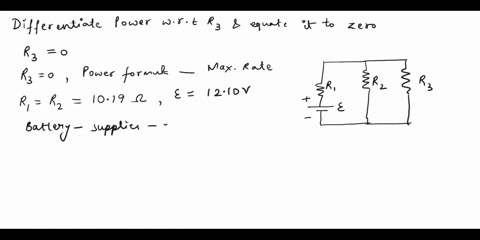 Differentiate Power w.r.t R3 & equate it to zero
R3 = 0
R3 = 0 , Power formula — Max. Rate
R1 = R2 = 10.19 Ω , ε = 12.10V
Battery — supplies —
R1
R2
R3
+
ε
-